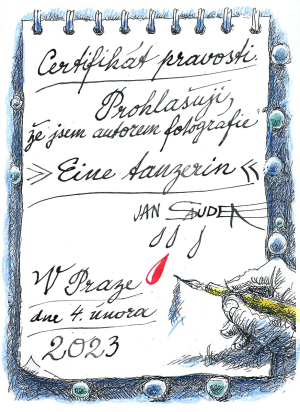 Certifikát pravosti.
Prohlašuji,
že jsem autorem fotografie
»Eine tanzerin«
JAN SAUDEK
W Praze
dne 4. února
2023